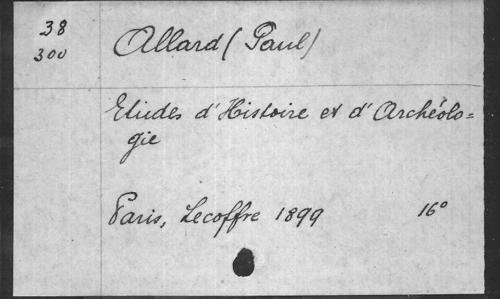 38
300
Allard (Paul)
Etudes d'Histoire et d'Archéolo=
gie
Paris, Lecoffre 1899 16°